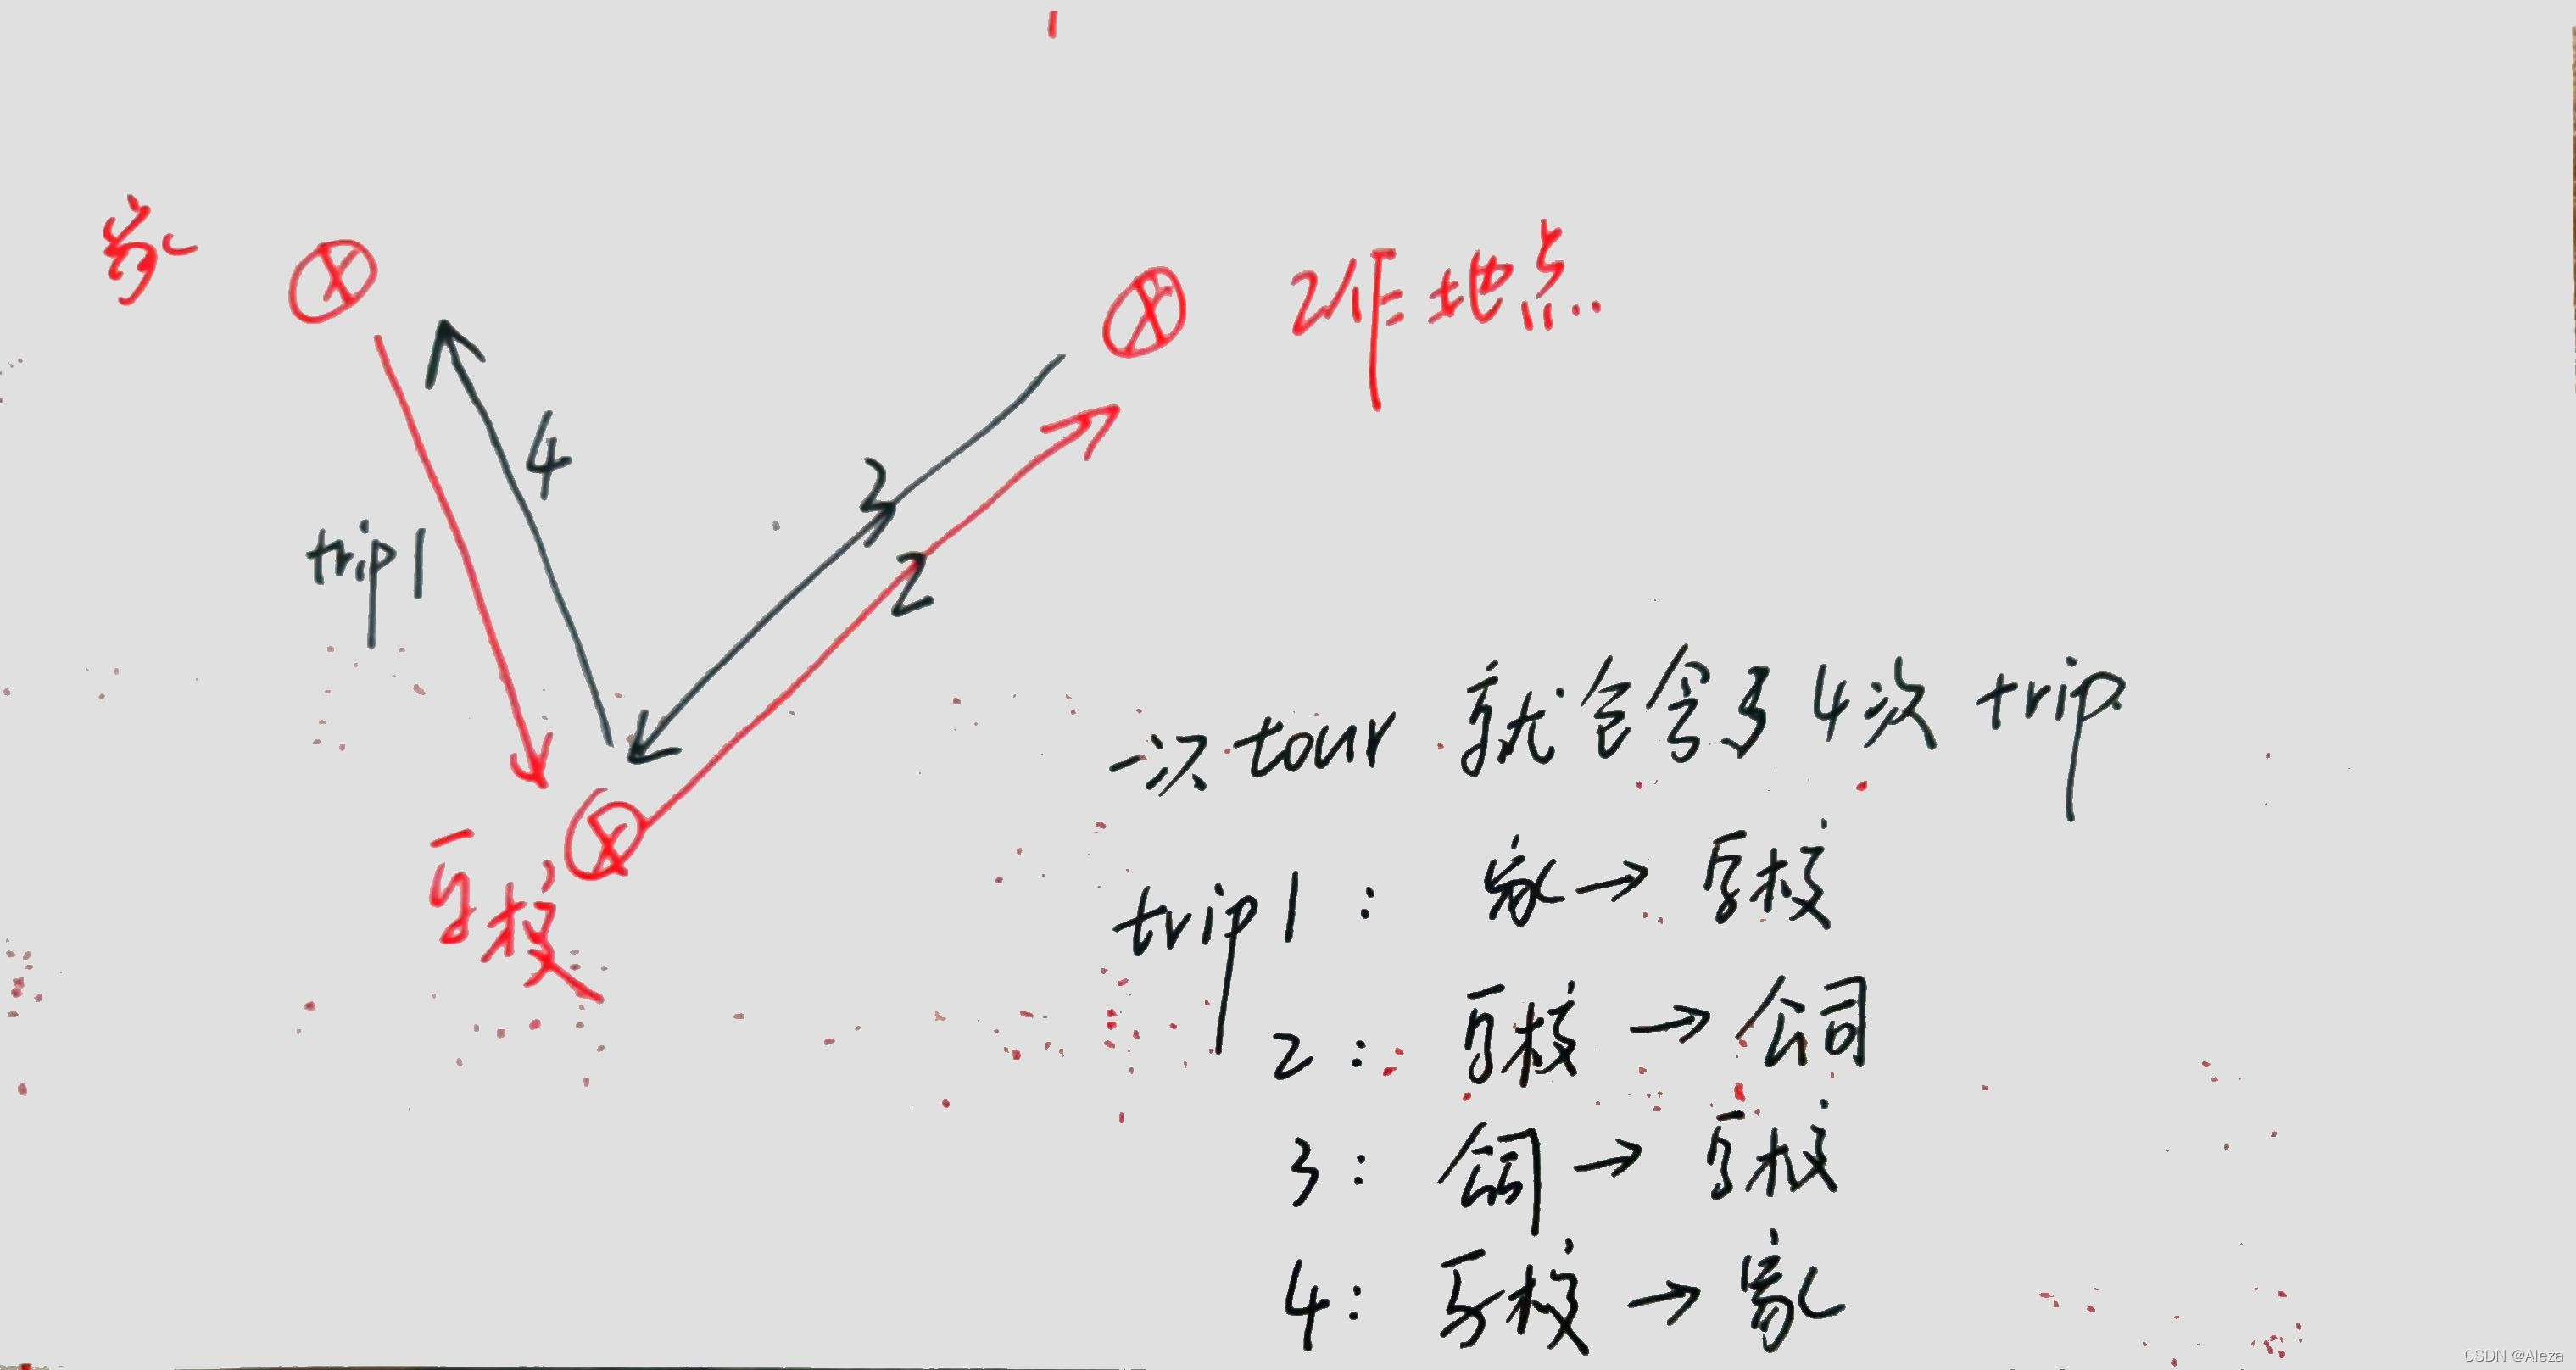 家
工作地点
4
3
trip1
2
一次tour 就包含了4次 trip
学校
trip1: 家→学校
2: 学校→公司
3: 公司→学校
4: 学校→家
CSDN @Aleza